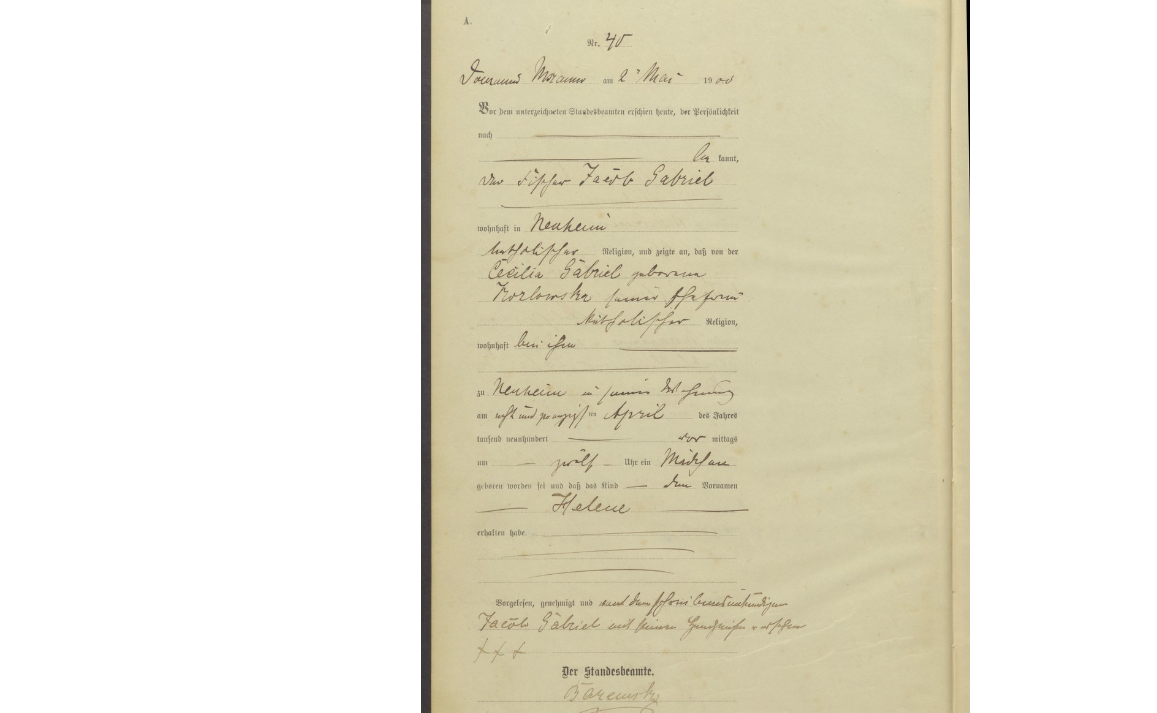 A.
Nr. 40
am 2. Mai 1900
Vor dem unterzeichneten Standesbeamten erschien heute, der Persönlichkeit
nach
be kannt,
der Fischer Jacob Gabriel
wohnhaft in Neuheim
katholischer Religion, und zeigte an, daß von der
Cecilia Gabriel geborenen
Kozlowska seiner Ehefrau
katholischer Religion,
wohnhaft bei ihm
zu Neuheim in seiner Wohnung
am acht und zwanzigsten April des Jahres
tausend neunhundert vor mittags
um zwölf Uhr ein Mädchen
geboren worden sei und daß das Kind den Vornamen
Helene
erhalten habe
Vorgelesen, genehmigt und und dem schreibensunkundigen
Jacob Gabriel mit seinem Handzeichen versehen
+ + +
Der Standesbeamte.